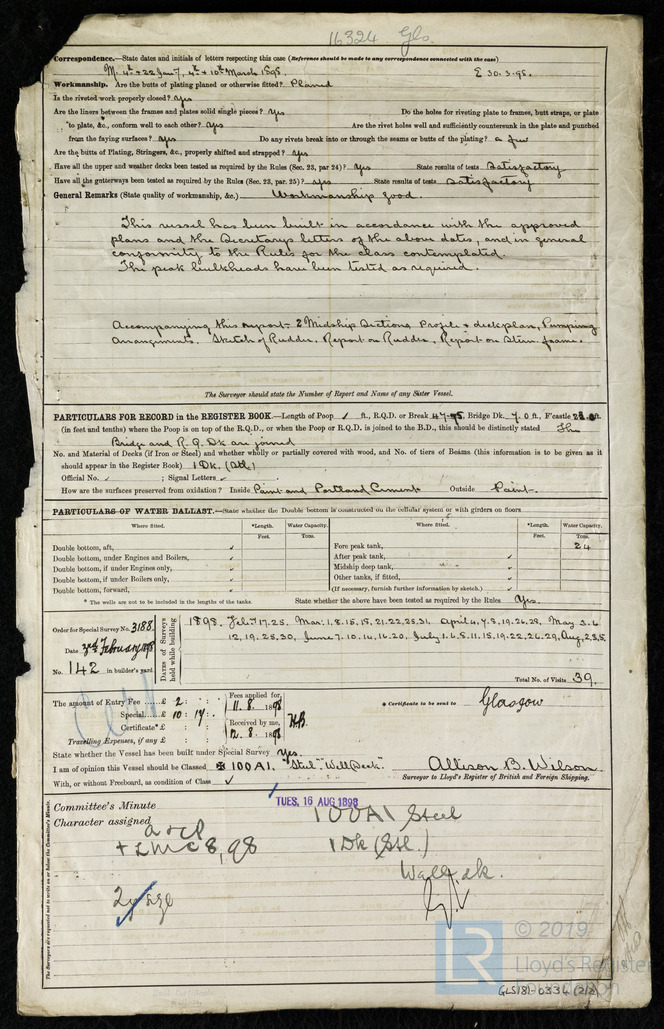 16324 Gls.
Correspondence.—State dates and initials of letters respecting this case (Reference should be made to any correspondence connected with the case)
M. 4th + 22 Jan 7, 4th + 10th March 1898. E 30.3.98.
Workmanship. Are the butts of plating planed or otherwise fitted? Planed
Is the riveted work properly closed? Yes
Are the liners between the frames and plates solid single pieces? Yes Do the holes for riveting plate to frames, butt straps, or plate
to plate, &c., conform well to each other? Yes Are the rivet holes well and sufficiently countersunk in the plate and punched
from the faying surfaces? Yes Do any rivets break into or through the seams or butts of the plating? a few
Are the butts of Plating, Stringers, &c., properly shifted and strapped? Yes
Have all the upper and weather decks been tested as required by the Rules (Sec. 23, par 24)? Yes State results of tests Satisfactory
Have all the gutterways been tested as required by the Rules (Sec. 23, par. 25)? Yes State results of tests Satisfactory
General Remarks (State quality of workmanship, &c.) Workmanship good.
This vessel has been built in accordance with the approved
plans and the Secretarys letters of the above dates, and in general
conformity to the Rules for the class contemplated.
The peak bulkheads have been tested as required.
Accompanying this report- 2 Midship Sections, Profile + deck plan, Pumping
Arrangements. Sketch of Rudder, Report on Rudder, Report on Stern frame.
The Surveyor should state the Number of Report and Name of any Sister Vessel.
PARTICULARS FOR RECORD in the REGISTER BOOK.—Length of Poop ✓ ft., R.Q.D. or Break 47.95, Bridge Dk. 7.0 ft., F'castle ft.
(in feet and tenths) where the Poop is on top of the R.Q.D., or when the Poop or R.Q.D. is joined to the B.D., this should be distinctly stated The
Bridge and R. Q. Dk are joined
No. and Material of Decks (if Iron or Steel) and whether wholly or partially covered with wood, and No. of tiers of Beams (this information is to be given as it
should appear in the Register Book) 1 Dk. (Stl)
Official No. ✓ ; Signal Letters ✓
How are the surfaces preserved from oxidation? Inside Paint and Portland Cement Outside Paint.
PARTICULARS OF WATER BALLAST.—State whether the Double bottom is constructed on the cellular system or with girders on floors
Where fitted. *Length. Water Capacity. Where fitted. *Length. Water Capacity.
Feet. Tons. Feet. Tons.
Double bottom, aft, ✓ Fore peak tank, 24
Double bottom, under Engines and Boilers, ✓ After peak tank, ✓
Double bottom, if under Engines only, ✓ Midship deep tank, ✓
Double bottom, if under Boilers only, ✓ Other tanks, if fitted, ✓
Double bottom, forward, ✓ (If necessary, furnish further information by sketch.) ✓
* The wells are not to be included in the lengths of the tanks. State whether the above have been tested as required by the Rules Yes.
Order for Special Survey No. 3188.
Date February 1898
No. 142 in builder's yard
Dates of Surveys held while building
1898. Feb. 7. 17. 25. Mar. 1. 8. 15. 15. 21. 22. 25. 31. April 4, 7. 8. 19. 26. 28, May 3. 6
12, 19. 25. 30, June 7. 10. 14. 16. 20, July 1. 6. 8. 11. 15. 19. 22. 26. 29, Aug. 2. 3. 5.
Total No. of Visits 39.
The amount of Entry Fee .....£ 2 : : Fees applied for, * Certificate to be sent to Glasgow
Special .....£ 10 : 17 : 11. 8. 1898
Certificate* £ : : Received by me, H.B.
Travelling Expenses, if any £ : : 12. 8. 1898
Cert
State whether the Vessel has been built under Special Survey Yes.
I am of opinion this Vessel should be Classed ✠ 100A1. "Steel" "Well Deck" Allison B. Wilson
With, or without Freeboard, as condition of Class ✓ Surveyor to Lloyd's Register of British and Foreign Shipping.
Committee's Minute TUES. 16 AUG 1898
Character assigned 100A1 Steel
a & cp 1 Dk (Stl.)
+ LMC 8,98 Well dk.
The Surveyors are requested not to write on or below the Committee's Minute.
LR © 2019
Lloyd's Register
Foundation
GLS181-0334 (2/2)